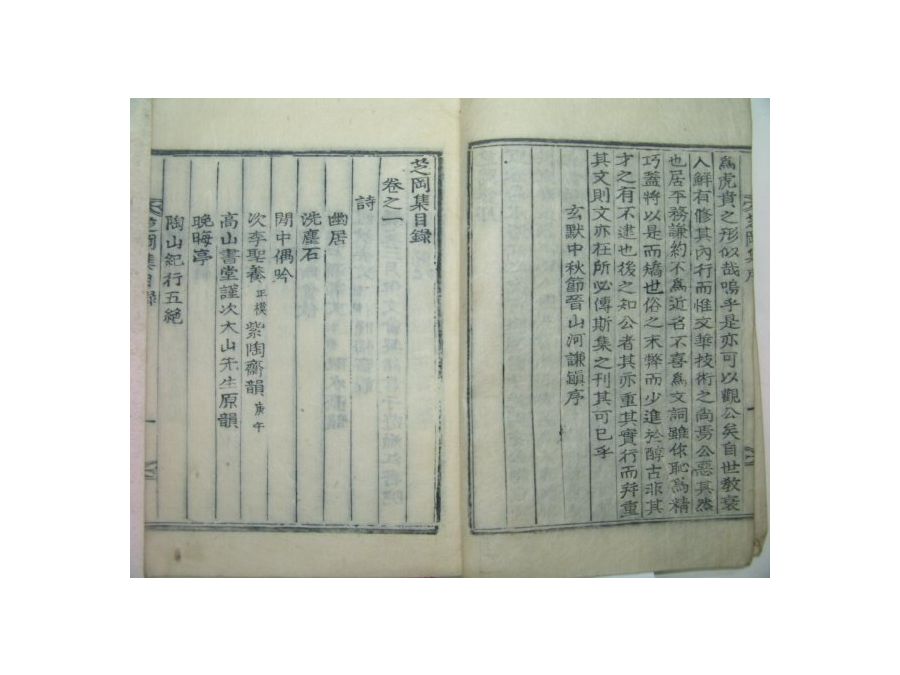 為虎賁之形似哉嗚乎是亦可以觀公矣自世敎衰
人鮮有修其內行而惟文華技術之尙焉公惡其然
也居平務謙約不爲近名不喜爲文詞雖作恥爲精
巧蓋將以是而矯也俗之末弊而少進於醇古非其
才之有不逮也後之知公者其亦重其實行而幷重
其文則文亦在所必傳斯集之刊其可已乎
玄黓中秋節晉山河謙鎭序
芝岡集序
一
芝岡集目錄
卷之一
詩
幽居
洗塵石
閒中偶吟
次李聖養正模紫陶齋韻庚午
高山書堂謹次大山先生原韻
晩晦亭
陶山紀行五絶
芝岡集目錄
一